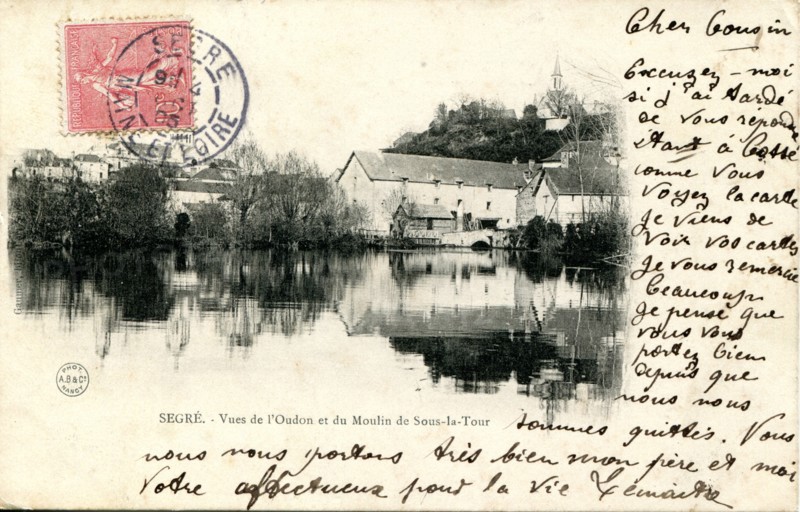 REPUBLIQUE FRANÇAISE
SEGRÉ
MAINE ET LOIRE
Cher Cousin
Excusez-moi
si j'ai tardé
de vous répondre
étant à Cossé
comme vous
voyez la carte
Je viens de
voir vos cartes
Je vous remercie
beaucoup
Je pense que
vous vous
portez bien
depuis que
nous nous
sommes quittés. Vous
nous nous portons très bien mon père et moi
Votre affectueux pour la vie Lemaitre
PHOT.
A.B & Cie
NANCY
SEGRÉ. - Vues de l'Oudon et du Moulin de Sous-la-Tour